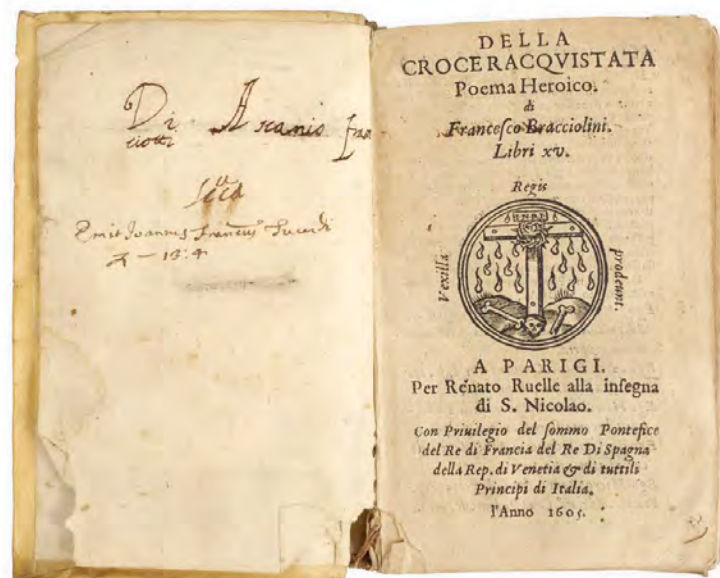 Di Ascanio
ciotti
Emit Joannes
DELLA
CROCE RACQVISTATA
Poema Heroico.
di
Franceſco Bracciolini.
Libri xv.
Regis
Vexilla
prodeunt.
A PARIGI.
Per Renato Ruelle alla inſegna
di S. Nicolao.
Con Priuilegio del ſommo Pontefice
del Re di Francia del Re Di Spagna
della Rep. di Venetia & di tuttili
Principi di Italia.
l'Anno 1605.